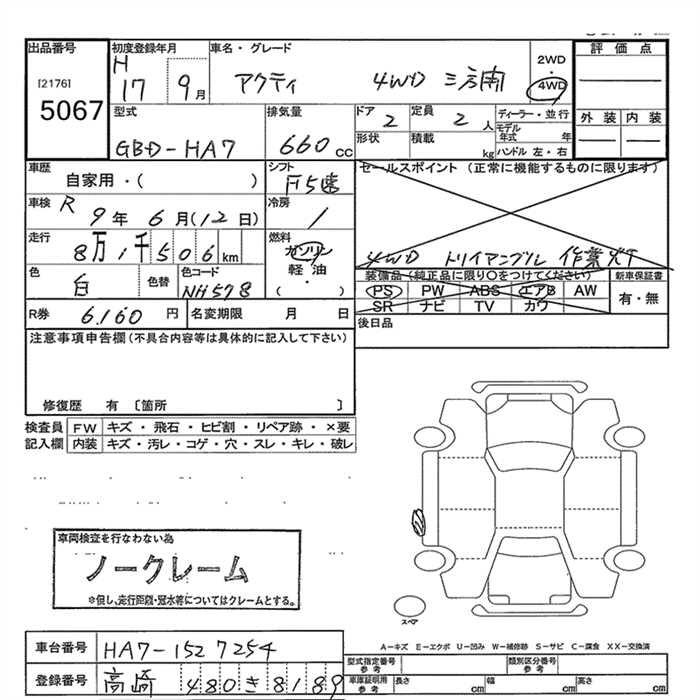 出品番号 初度登録年月 車名・グレード 2WD・4WD 評価点
[2176] H 17 9月 アクティ 4WD 三方開
5067
型式 排気量 ドア 定員 ディーラー・並行 外装 内装
GBD-HA7 660cc 2 2人 モデル年式 年
形状 積載 kg ハンドル 左・右
車歴 シフト セールスポイント(正常に機能するものに限ります)
自家用・( ) F5速
車検 R 9年 6月(12日) 冷房
走行 8万1千506km 燃料 ガソリン 軽油 ・ ( )
4WD トリイアングル 作業灯
色 色替 色コード 装備品(純正品に限り○をつけてください) 新車保証書
白 NH578 PS PW ABS エアB AW 有・無
SR ナビ TV カワ
R券 6,160円 名変期限 月 日 後日品
注意事項申告欄(不具合内容等は具体的に記入して下さい)
修復歴 有 〔箇所 〕
検査員 FW キズ・飛石・ヒビ割・リペア跡・×要
記入欄 内装 キズ・汚レ・コゲ・穴・スレ・キレ・破レ
車両検査を行なわない為
ノークレーム
*但し、走行距離・冠水等についてはクレームとする。
スペア
A-キズ E-エクボ U-凹み W-補修跡 S-サビ C-腐食 XX-交換済
車台番号 HA7-1527254 型式指定番号 参考 類別区分番号 参考
登録番号 高崎 480き8189 車庫証明用 参考 長さ cm 幅 cm 高さ cm